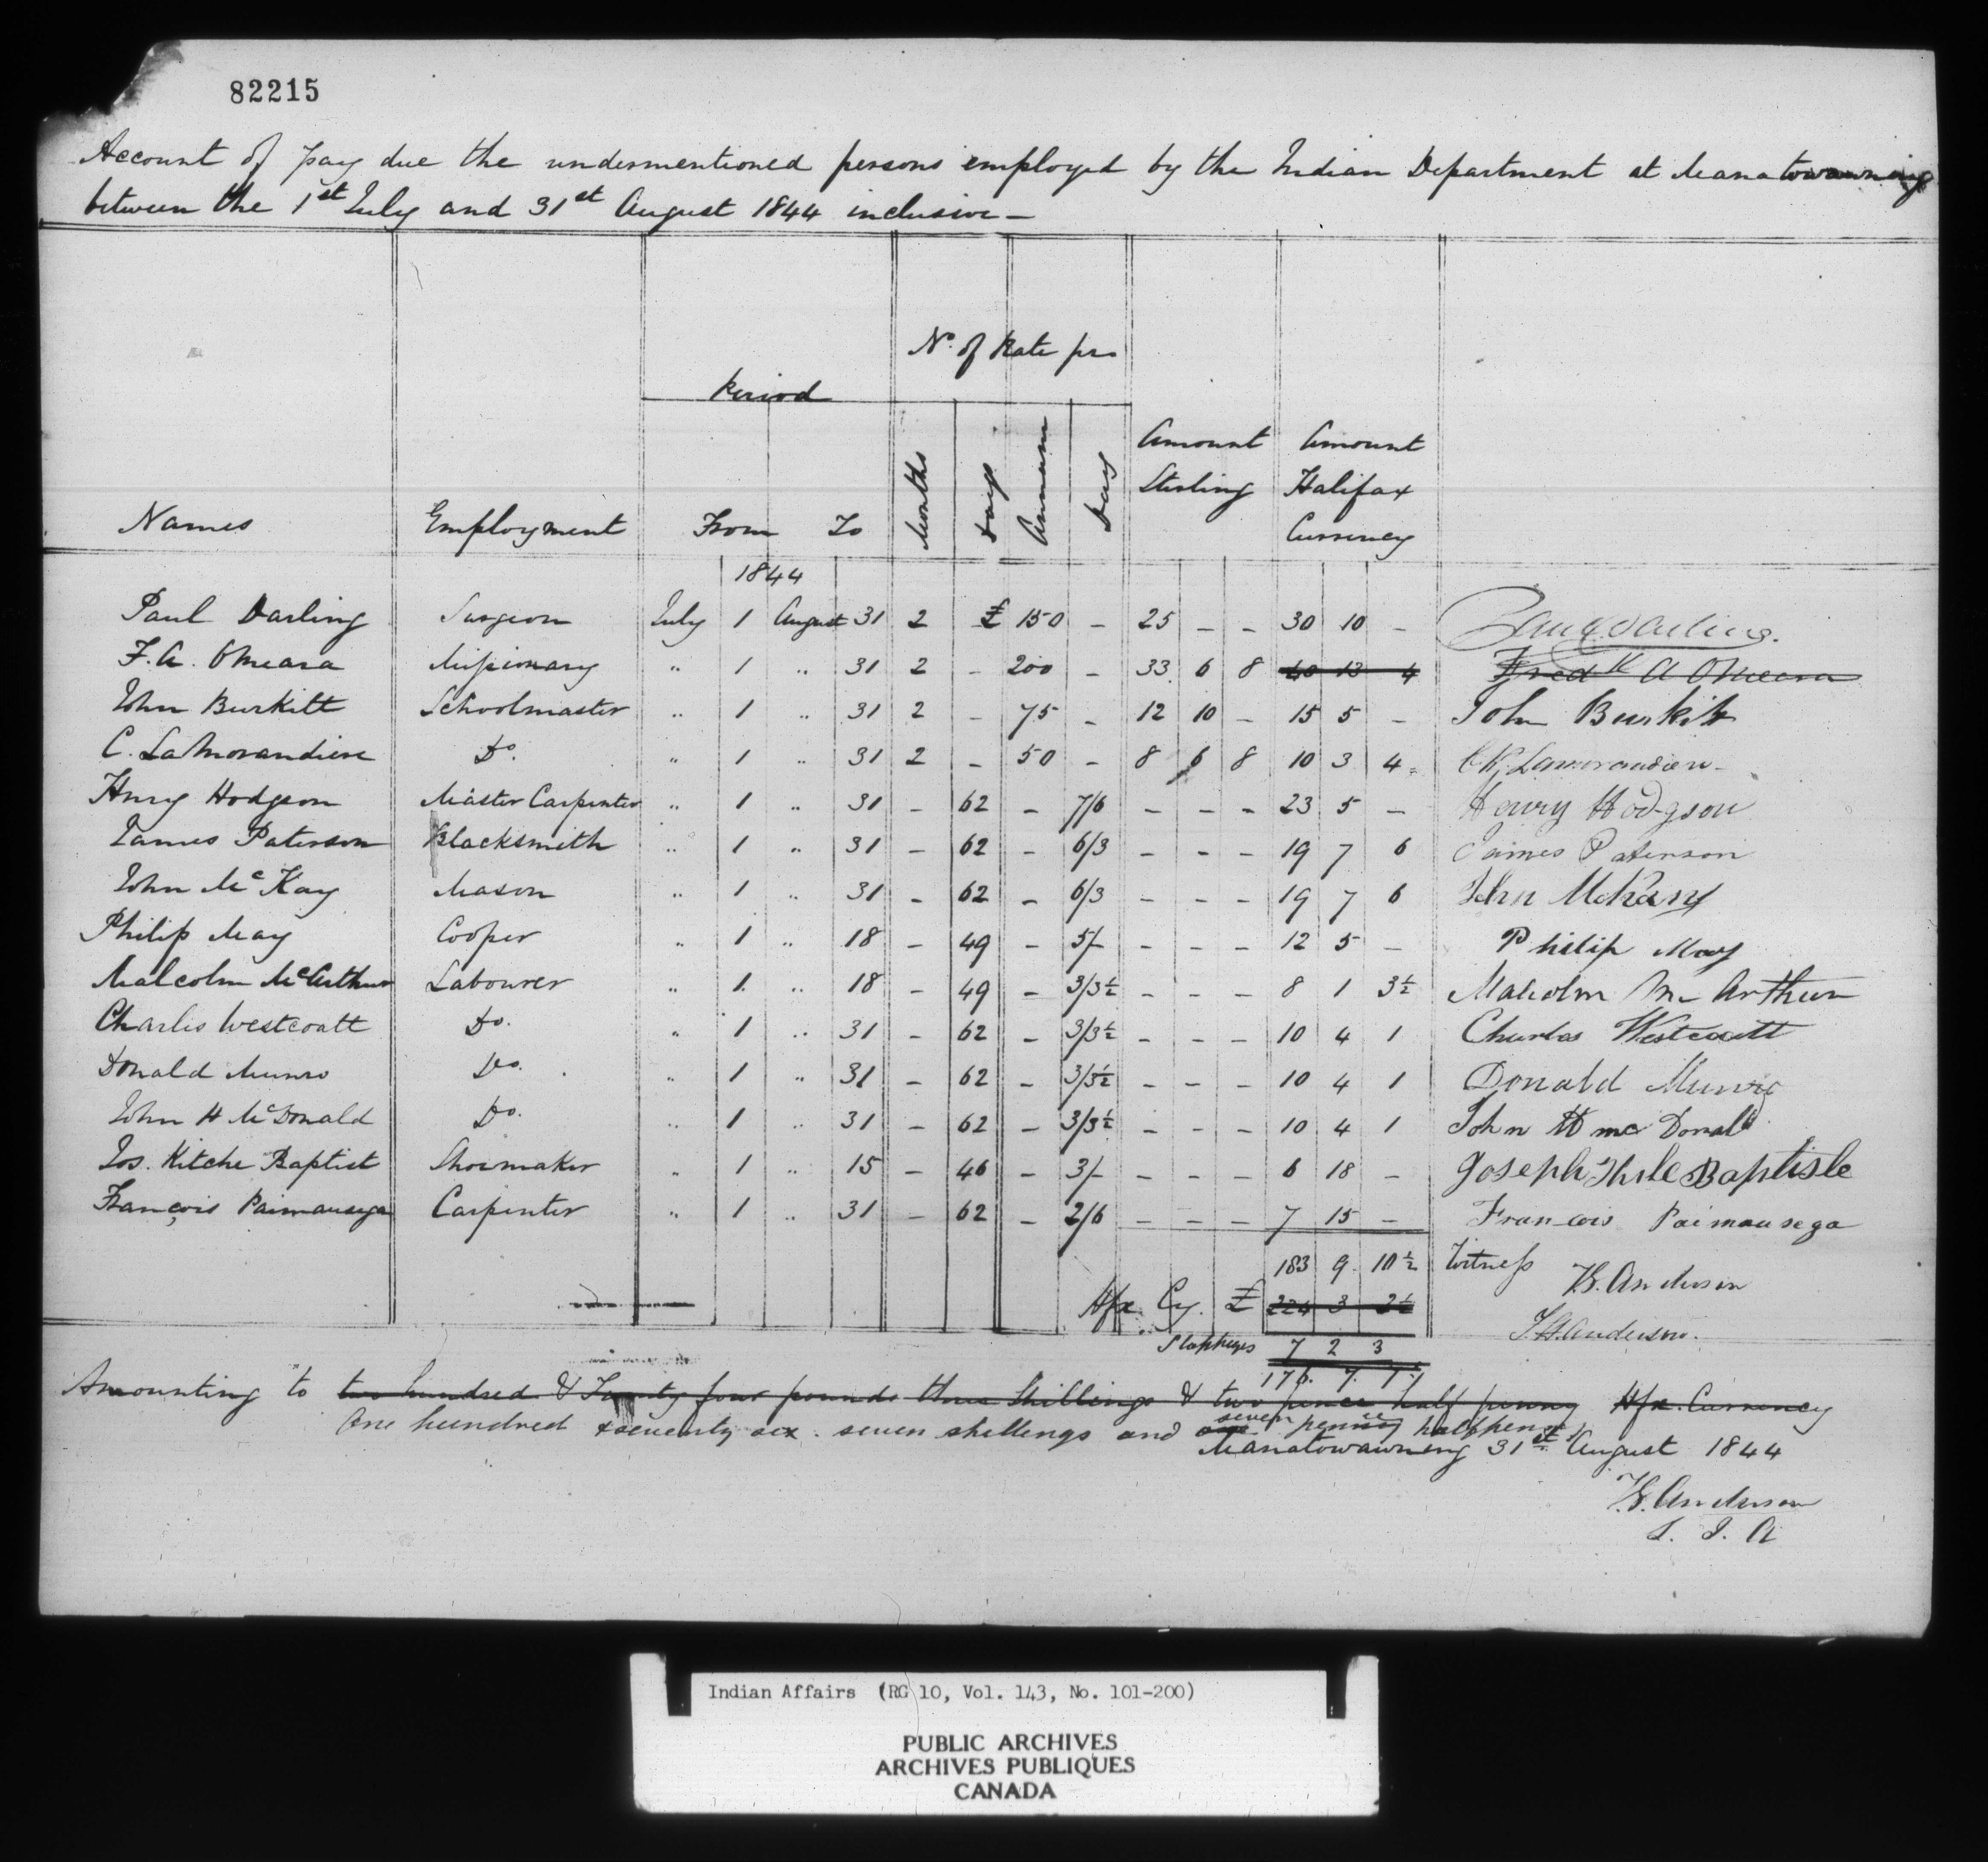 82215
Account of pay due the undermentioned persons employed by the Indian Department at Manatowawning
between the 1st July and 31st August 1844 inclusive —
Names Employment Period From To No. of Months Days Rate per Annum Day Amount Sterling Amount Halifax Currency
1844
Paul Darling Surgeon July 1 August 31 2 £ 150 – 25 – – 30 10 – Paul Darling.
F. A. OMeara Missionary " 1 " 31 2 – 200 – 33 6 8 40 13 4 Fredk A OMeara
John Burkitt Schoolmaster " 1 " 31 2 – 75 – 12 10 – 15 5 – John Burkitt
C. LaMorandiere Do. " 1 " 31 2 – 50 – 8 6 8 10 3 4 Lamorandiere
Henry Hodgson Master Carpenter " 1 " 31 – 62 – 7/6 – – – 23 5 – Henry Hodgson
James Paterson Blacksmith " 1 " 31 – 62 – 6/3 – – – 19 7 6 James Paterson
John McKay Mason " 1 " 31 – 62 – 6/3 – – – 19 7 6 John McKay
Philip May Cooper " 1 " 18 – 49 – 5/- – – – 12 5 – Philip May
Malcolm McArthur Labourer " 1 " 18 – 49 – 3/3½ – – – 8 1 3½ Malcolm Mc Arthur
Charles Westcoatt Do. " 1 " 31 – 62 – 3/3½ – – – 10 4 1 Charles Westcoatt
Donald Munro Do. " 1 " 31 – 62 – 3/3½ – – – 10 4 1 Donald Munro
John H McDonald Do. " 1 " 31 – 62 – 3/3½ – – – 10 4 1 John H mc Donald
Jos. Kitche Baptist Shoemaker " 1 " 15 – 46 – 3/- – – – 6 18 – Joseph Baptiste
François Paimausega Carpenter " 1 " 31 – 62 – 2/6 – – – 7 15 – Francois Paimausega
183 9 10½ Witness T.G. Anderson
Hfx. Cy. £ 224 3 2½ T.G. Anderson.
Stoppages 7 2 3
176. 7. 7½
Amounting to two hundred & Twenty four pounds three Shillings & two pence half penny Hfx. Currency
One hundred & seventy six. seven shillings and one seven pence halfpenny
Manatowawning 31st August 1844
T.G. Anderson
S. I. A
Indian Affairs (RG 10, Vol. 143, No. 101-200)
PUBLIC ARCHIVES
ARCHIVES PUBLIQUES
CANADA